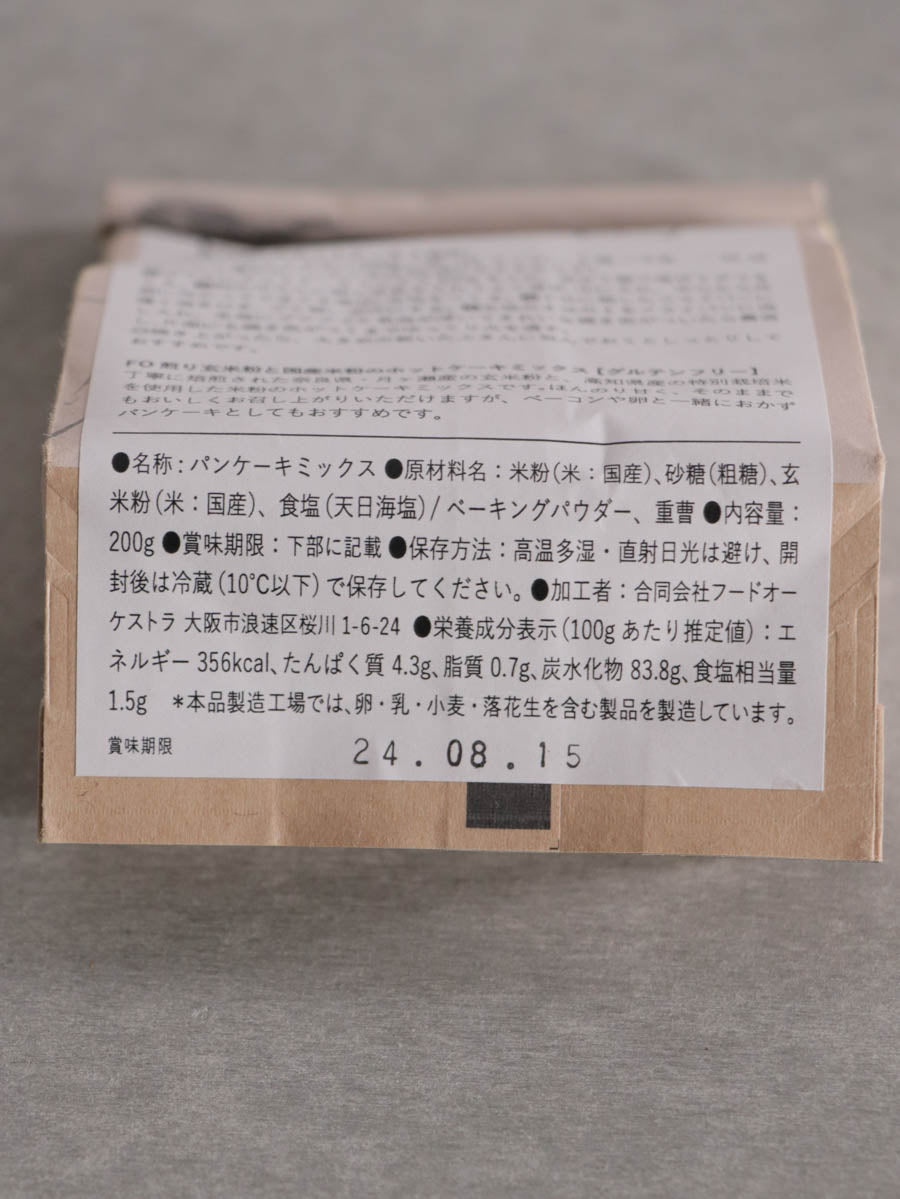 おすすめです。
FO 煎り玄米粉と国産米粉のホットケーキミックス【グルテンフリー】
丁寧に焙煎された奈良県・月ヶ瀬産の玄米粉と、高知県産の特別栽培米
を使用した米粉のホットケーキミックスです。ほんのり甘く、そのままで
もおいしくお召し上がりいただけますが、ベーコンや卵と一緒におかず
パンケーキとしてもおすすめです。
●名称：パンケーキミックス ●原材料名：米粉(米：国産)、砂糖(粗糖)、玄
米粉(米：国産)、食塩(天日海塩)/ベーキングパウダー、重曹 ●内容量：
200g ●賞味期限：下部に記載 ●保存方法：高温多湿・直射日光は避け、開
封後は冷蔵(10℃以下)で保存してください。●加工者：合同会社フードオー
ケストラ 大阪市浪速区桜川1-6-24 ●栄養成分表示(100gあたり推定値)：エ
ネルギー 356kcal、たんぱく質 4.3g、脂質 0.7g、炭水化物 83.8g、食塩相当量
1.5g ＊本品製造工場では、卵・乳・小麦・落花生を含む製品を製造しています。
賞味期限 24.08.15